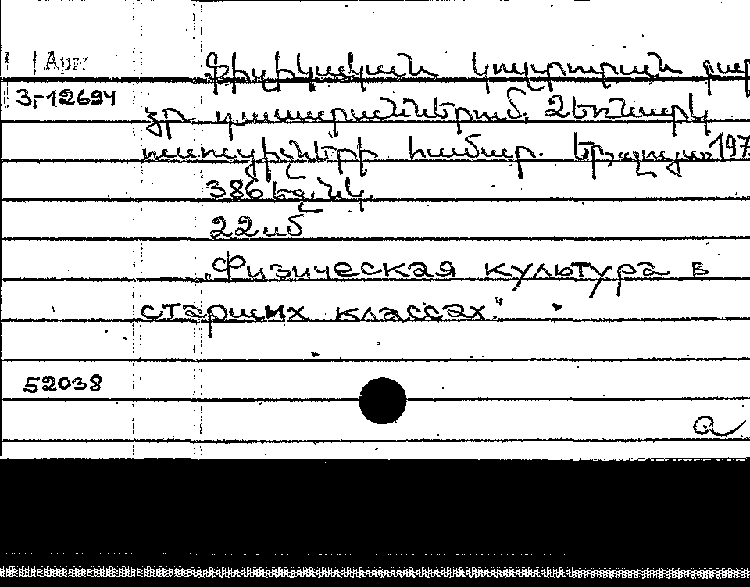 Арм
3г-12694
Ֆիզիկական կուլտուրան բար
ձր դասարաններում. Ձեռնարկ
ուսուցիչների համար. Երև., Լույս, 197
386 էջ, նկ.
22 սմ
„Физическая культура в
старших классах."
52038
a